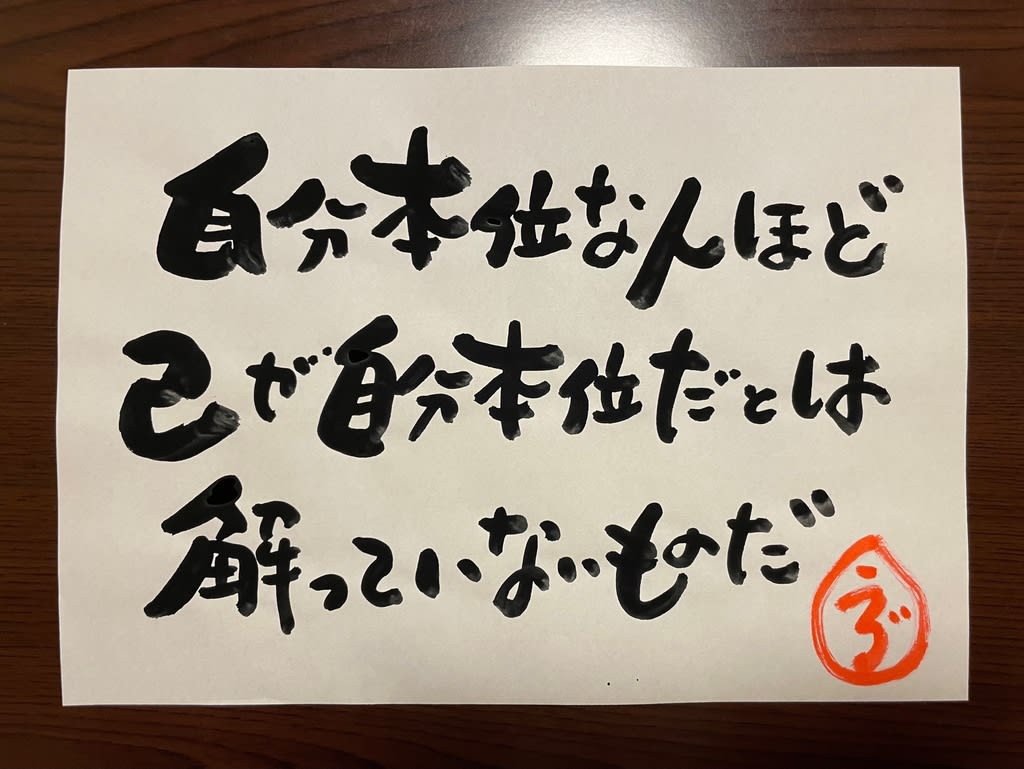 自分本位な人ほど
己が自分本位だとは
解っていないものだ